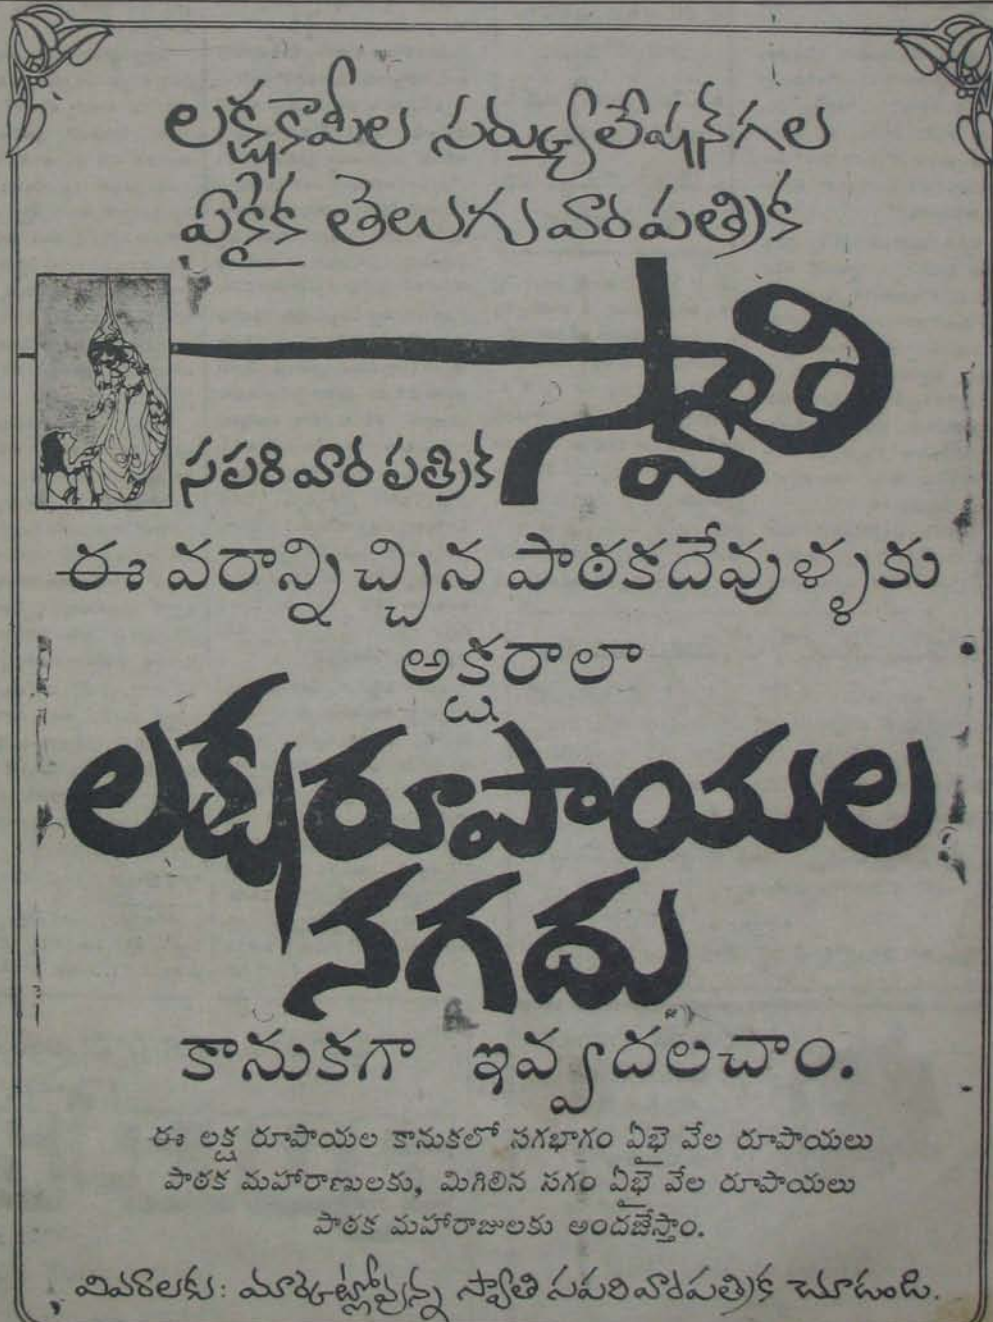 లక్షకాపీల సర్క్యులేషన్‌గల
ఏకైక తెలుగు వారపత్రిక
స్వాతి
సపరివారపత్రిక
ఈ వరాన్నిచ్చిన పాఠకదేవుళ్ళకు
అక్షరాలా
లక్షరూపాయల
నగదు
కానుకగా ఇవ్వదలచాం.
ఈ లక్ష రూపాయల కానుకలో సగభాగం ఏభై వేల రూపాయలు
పాఠక మహారాణులకు, మిగిలిన సగం ఏభై వేల రూపాయలు
పాఠక మహారాజులకు అందజేస్తాం.
వివరాలకు: మార్కెట్లోవున్న స్వాతి సపరివారపత్రిక చూడండి.